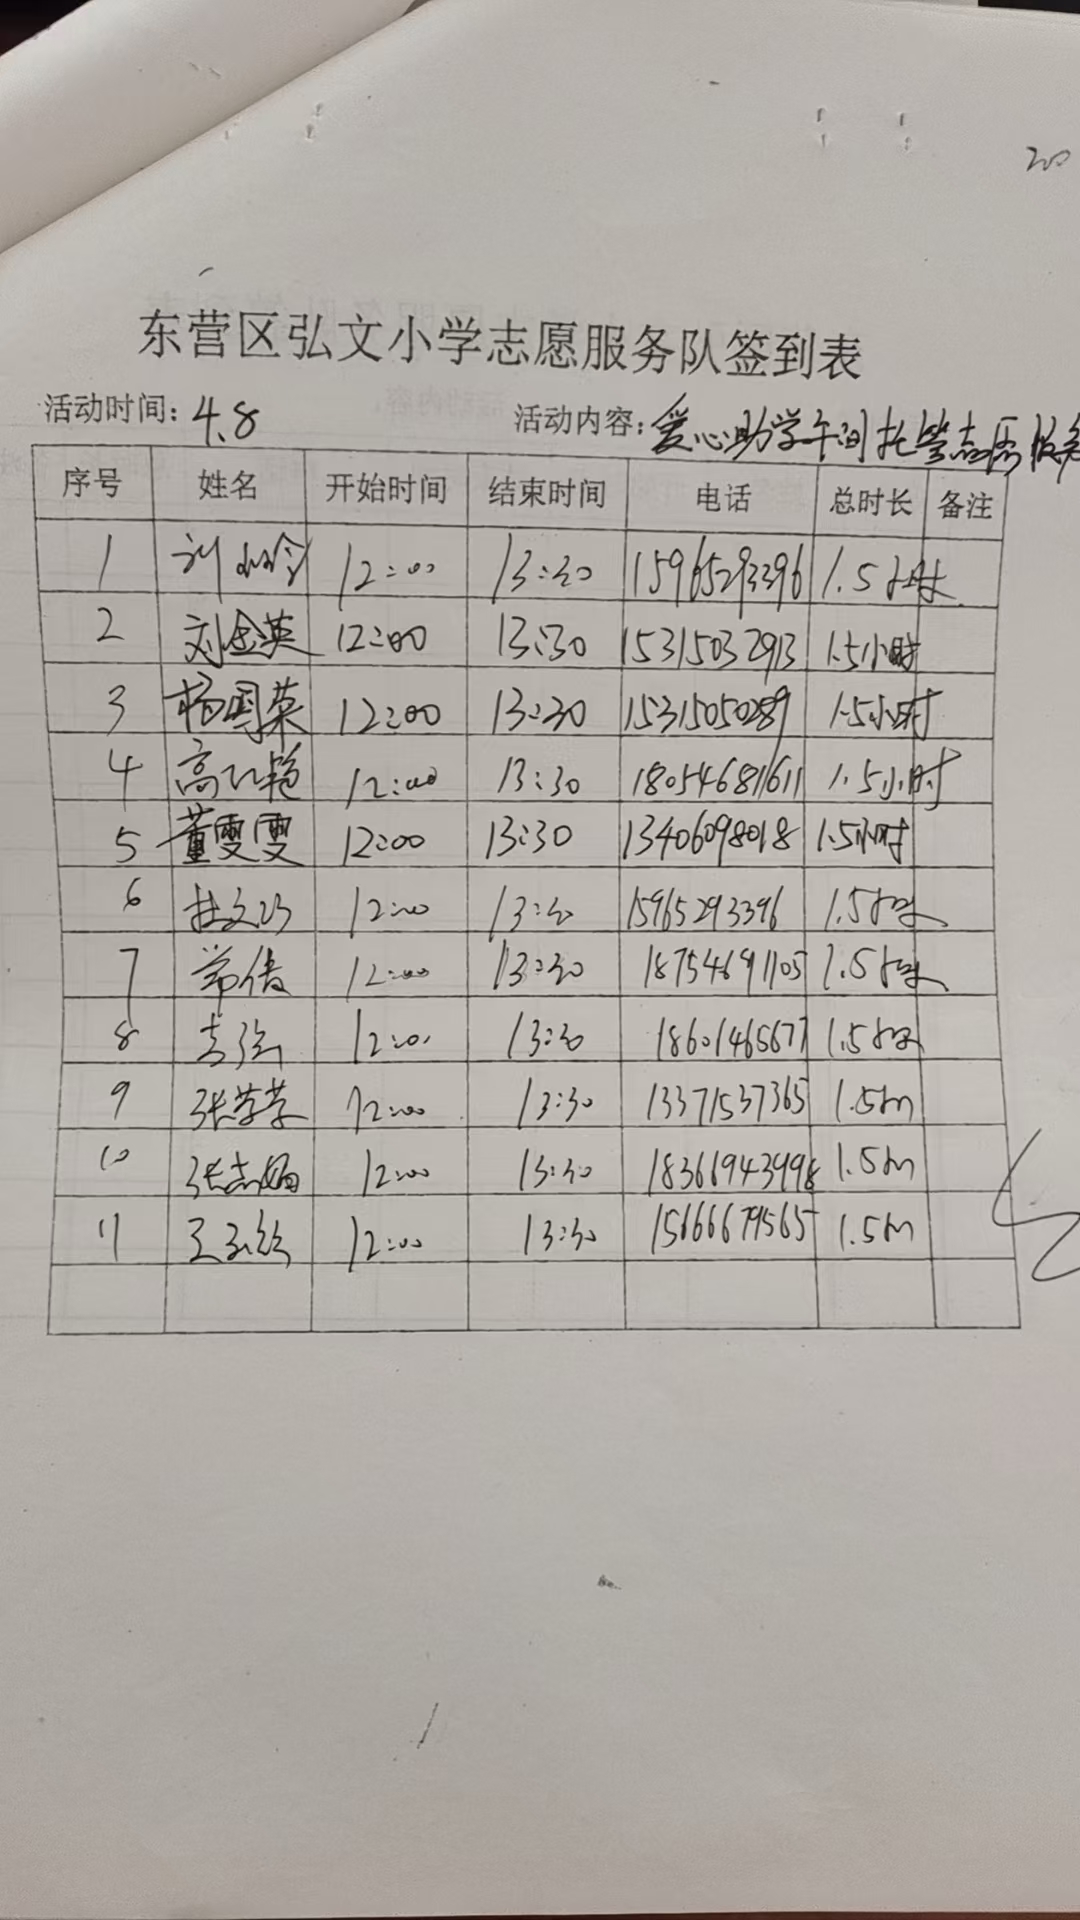 200
东营区弘文小学志愿服务队签到表
活动时间: 4.8 活动内容: 爱心助学午间托管志愿服务
序号 姓名 开始时间 结束时间 电话 总时长 备注
1 刘 12:00 13:30 15965293396 1.5小时
2 刘金英 12:00 13:30 15315032913 1.5小时
3 杨国荣 12:00 13:30 15315050289 1.5小时
4 高红艳 12:00 13:30 18054681611 1.5小时
5 董雯雯 12:00 13:30 13406098018 1.5小时
6 杜文巧 12:00 13:30 15965293396 1.5小时
7 常倩 12:00 13:30 18754691105 1.5小时
8 12:00 13:30 18601465677 1.5小时
9 张苹苹 12:00 13:30 13371537365 1.5h
10 张志娟 12:00 13:30 18366943998 1.5h
11 王玉 12:00 13:30 15666679565 1.5h